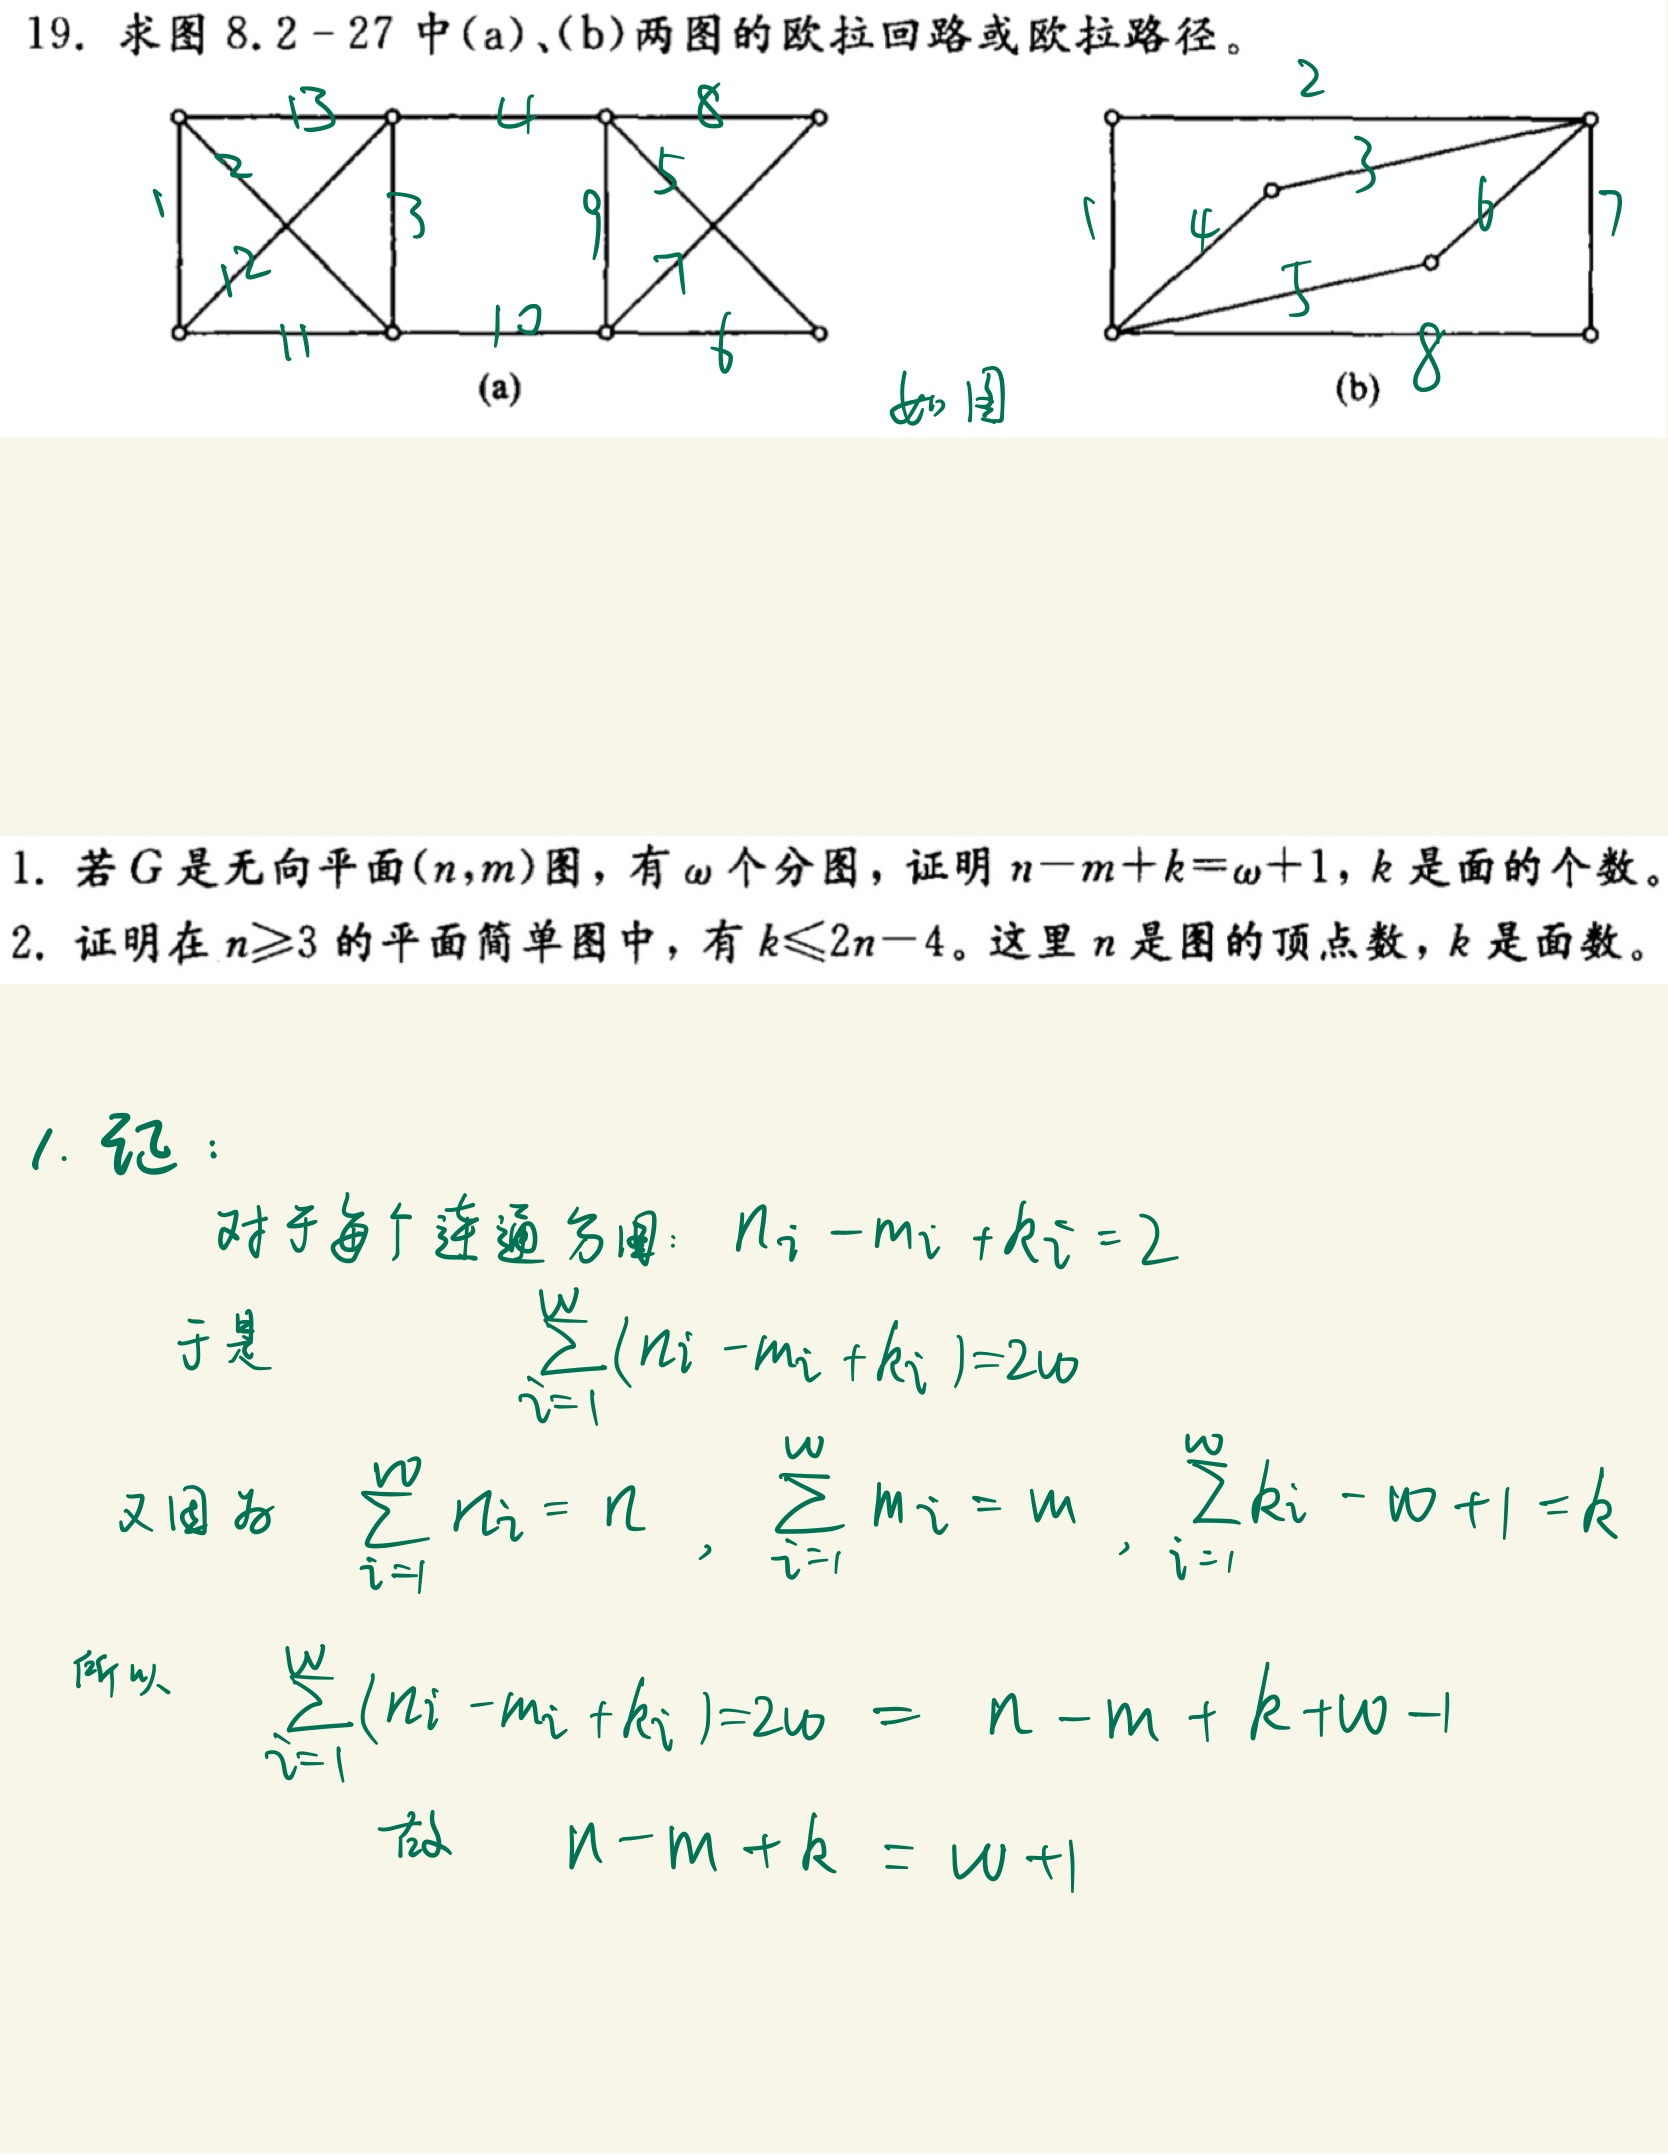 19. 求图 8.2-27 中(a)、(b)两图的欧拉回路或欧拉路径。
13 4 8 2
1 2 3 9 5 1 4 3 6 7
12 7 5
11 10 6 8
(a) 如图 (b)
1. 若 G 是无向平面(n,m)图，有 ω 个分图，证明 n-m+k=ω+1，k 是面的个数。
2. 证明在 n≥3 的平面简单图中，有 k≤2n-4。这里 n 是图的顶点数，k 是面数。
1. 证：
对于每个连通分图：n_i - m_i + k_i = 2
于是 ∑_{i=1}^{w}(n_i - m_i + k_i) = 2w
又因为 ∑_{i=1}^{w} n_i = n , ∑_{i=1}^{w} m_i = m , ∑_{i=1}^{w} k_i - w + 1 = k
所以 ∑_{i=1}^{w}(n_i - m_i + k_i) = 2w = n - m + k + w - 1
故 n - m + k = w + 1